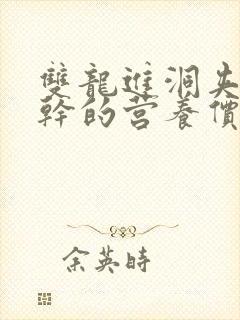 雙龍進洞尖
幹的营養價
余英時